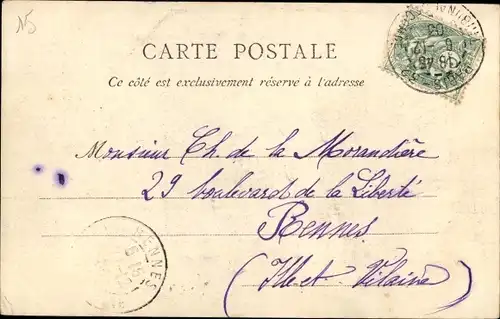 15
CARTE POSTALE
Ce côté est exclusivement réservé à l'adresse
Monsieur Ch. de la Morandière
29 boulevard de la Liberté
Rennes
(Ille et Vilaine)
RENNES